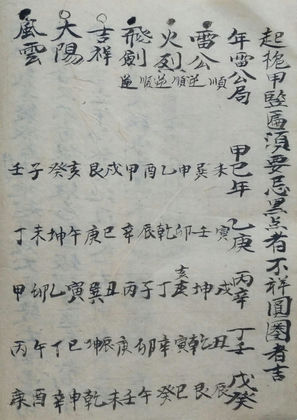 起桅甲竪匾須要忌黑点者不祥圓圈者吉
年雷公局 甲己年 乙庚 丙辛 丁壬 戊癸
雷公 順 未 寅 戌 丑 辰
逆 巽 壬 坤 乾 艮
火列 順 申 卯 亥 寅 巳
逆 乙 乾 丁 辛 癸
飛劍 順 酉 辰 子 卯 午
逆 甲 辛 丙 庚 壬
吉祥 戌 巳 丑 辰 未
艮 庚 巽 坤 乾
太陽 亥 午 寅 巳 申
癸 坤 乙 丁 辛
風雲 子 未 卯 午 酉
壬 丁 甲 丙 庚